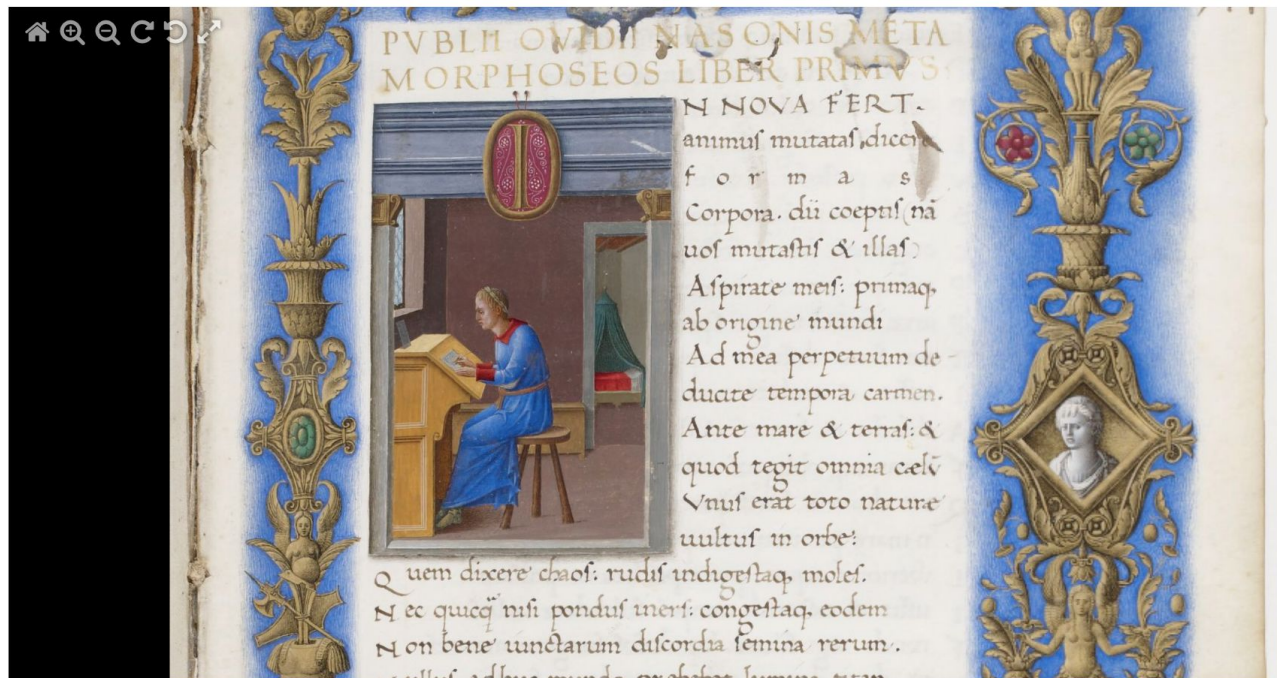 PVBLII OVIDII NASONIS META
MORPHOSEOS LIBER PRIMVS
IN NOVA FERT.
animus mutatas dicere
formas
Corpora. dii coeptis (nā
uos mutastis & illas)
Aspirate meis: primaq,
ab origine mundi
Ad mea perpetuum de-
ducite tempora carmen.
Ante mare & terras: &
quod tegit omnia cælū
Vnus erat toto naturæ
uultus in orbe:
Quem dixere chaos: rudis indigestaq, moles.
Nec quicq̄ nisi pondus iners: congestaq, eodem
Non bene iunctarum discordia semina rerum.